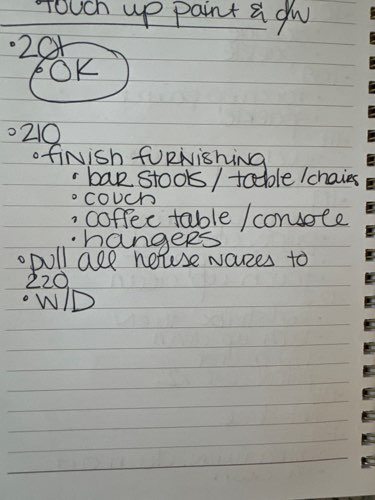 • touch up paint & d/w
• 201
• OK
• 210
• finish furnishing
• bar stools / table / chairs
• couch
• coffee table / console
• hangers
• pull all house wares to
220
• W/D